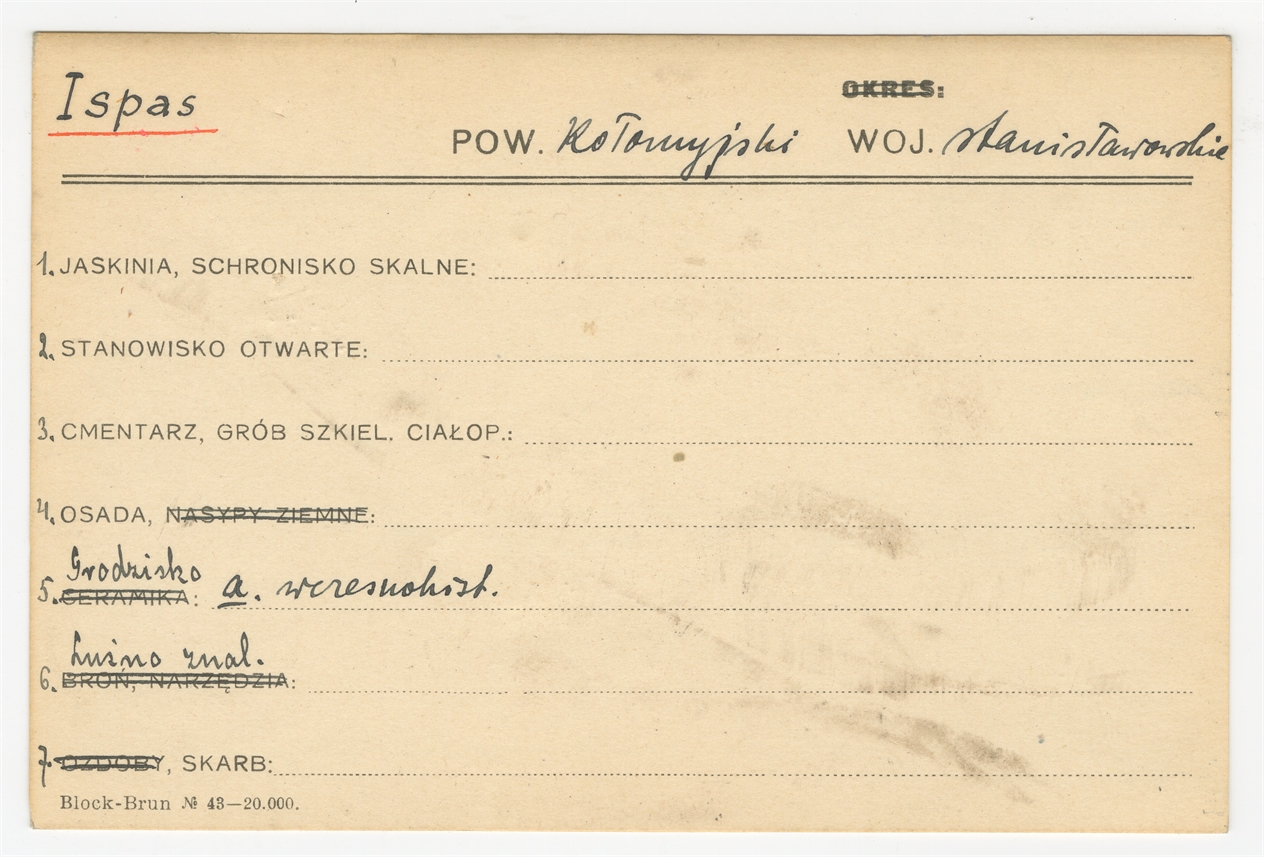 Ispas
OKRES:
POW. Kołomyjski WOJ. stanisławowskie
1. JASKINIA, SCHRONISKO SKALNE:
2. STANOWISKO OTWARTE:
3. CMENTARZ, GRÓB SZKIEL. CIAŁOP.:
4. OSADA, NASYPY ZIEMNE:
Grodzisko
5. CERAMIKA: a. wczesnohist.
Luźno znal.
6. BROŃ, NARZĘDZIA:
7. OZDOBY, SKARB:
Block-Brun № 43—20.000.